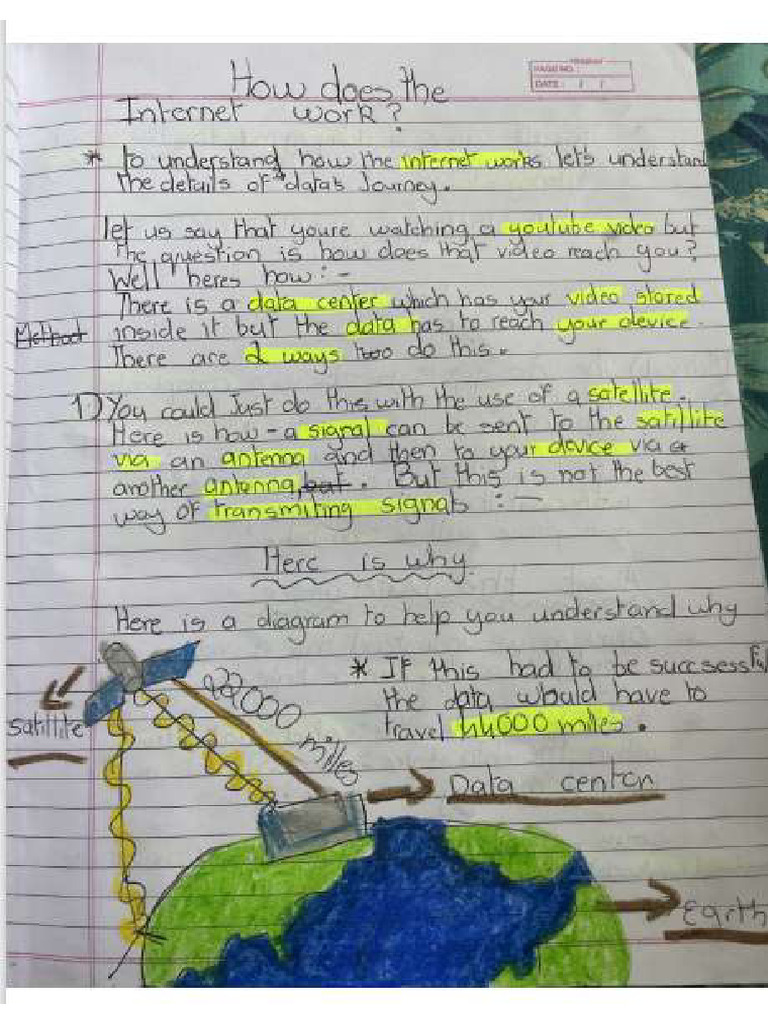 How does the
Internet work?
PAGE NO.:
DATE: / /
* to understand how the internet works let's understand
the details of "data's Journey.
let us say that youre watching a youtube video but
the question is how does that video reach you?
Well heres how:-
There is a data center which has your video stored
Method inside it but the data has to reach your device.
There are 2 ways too do this.
1) You could Just do this with the use of a satellite.
Here is how - a signal can be sent to the satillite
via an antenna and then to your device via a
another antenna, but. But this is not the best
way of transmiting signals :-
Here is why
Here is a diagram to help you understand why
* If this had to be succsessful
the data would have to
travel 44000 miles.
22000 miles
satillite
Data center
Earth